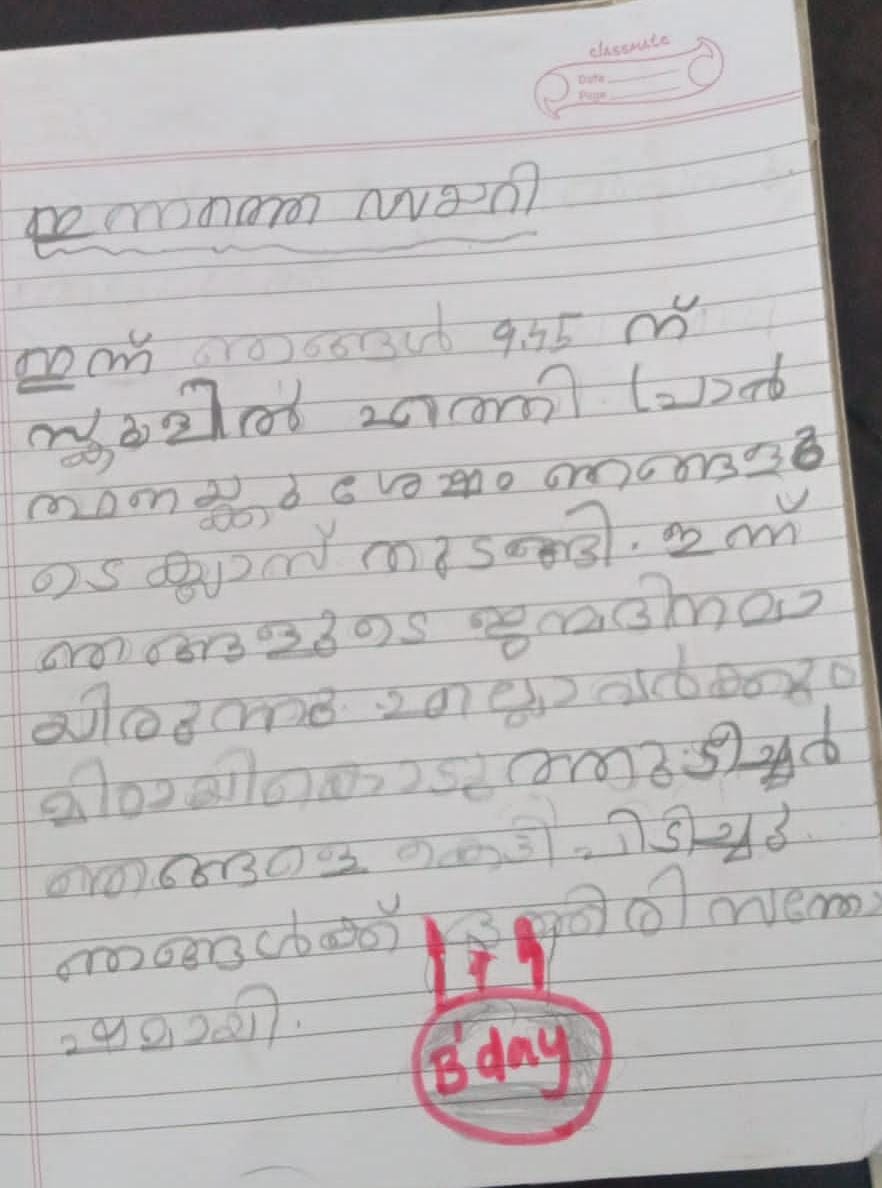 classmate
Date
Page
ഇന്നത്തെ ഡയറി
ഇന്ന് ഞങ്ങൾ 9.45 ന്
സ്കൂളിൽ എത്തി പ്രാർ
ത്ഥനയ്ക്കു ശേഷം ഞങ്ങളു
ടെ ക്ലാസ് തുടങ്ങി. ഇന്ന്
ഞങ്ങളുടെ ജന്മദിനമാ
യിരുന്നു. എല്ലാവർക്കും
മിഠായികൊടുത്തു. ടീച്ചർ
ഞങ്ങളെ കെട്ടി പിടിച്ചു.
ഞങ്ങൾക്ക് ഒത്തിരി സന്തോ
ഷമായി.
B'day